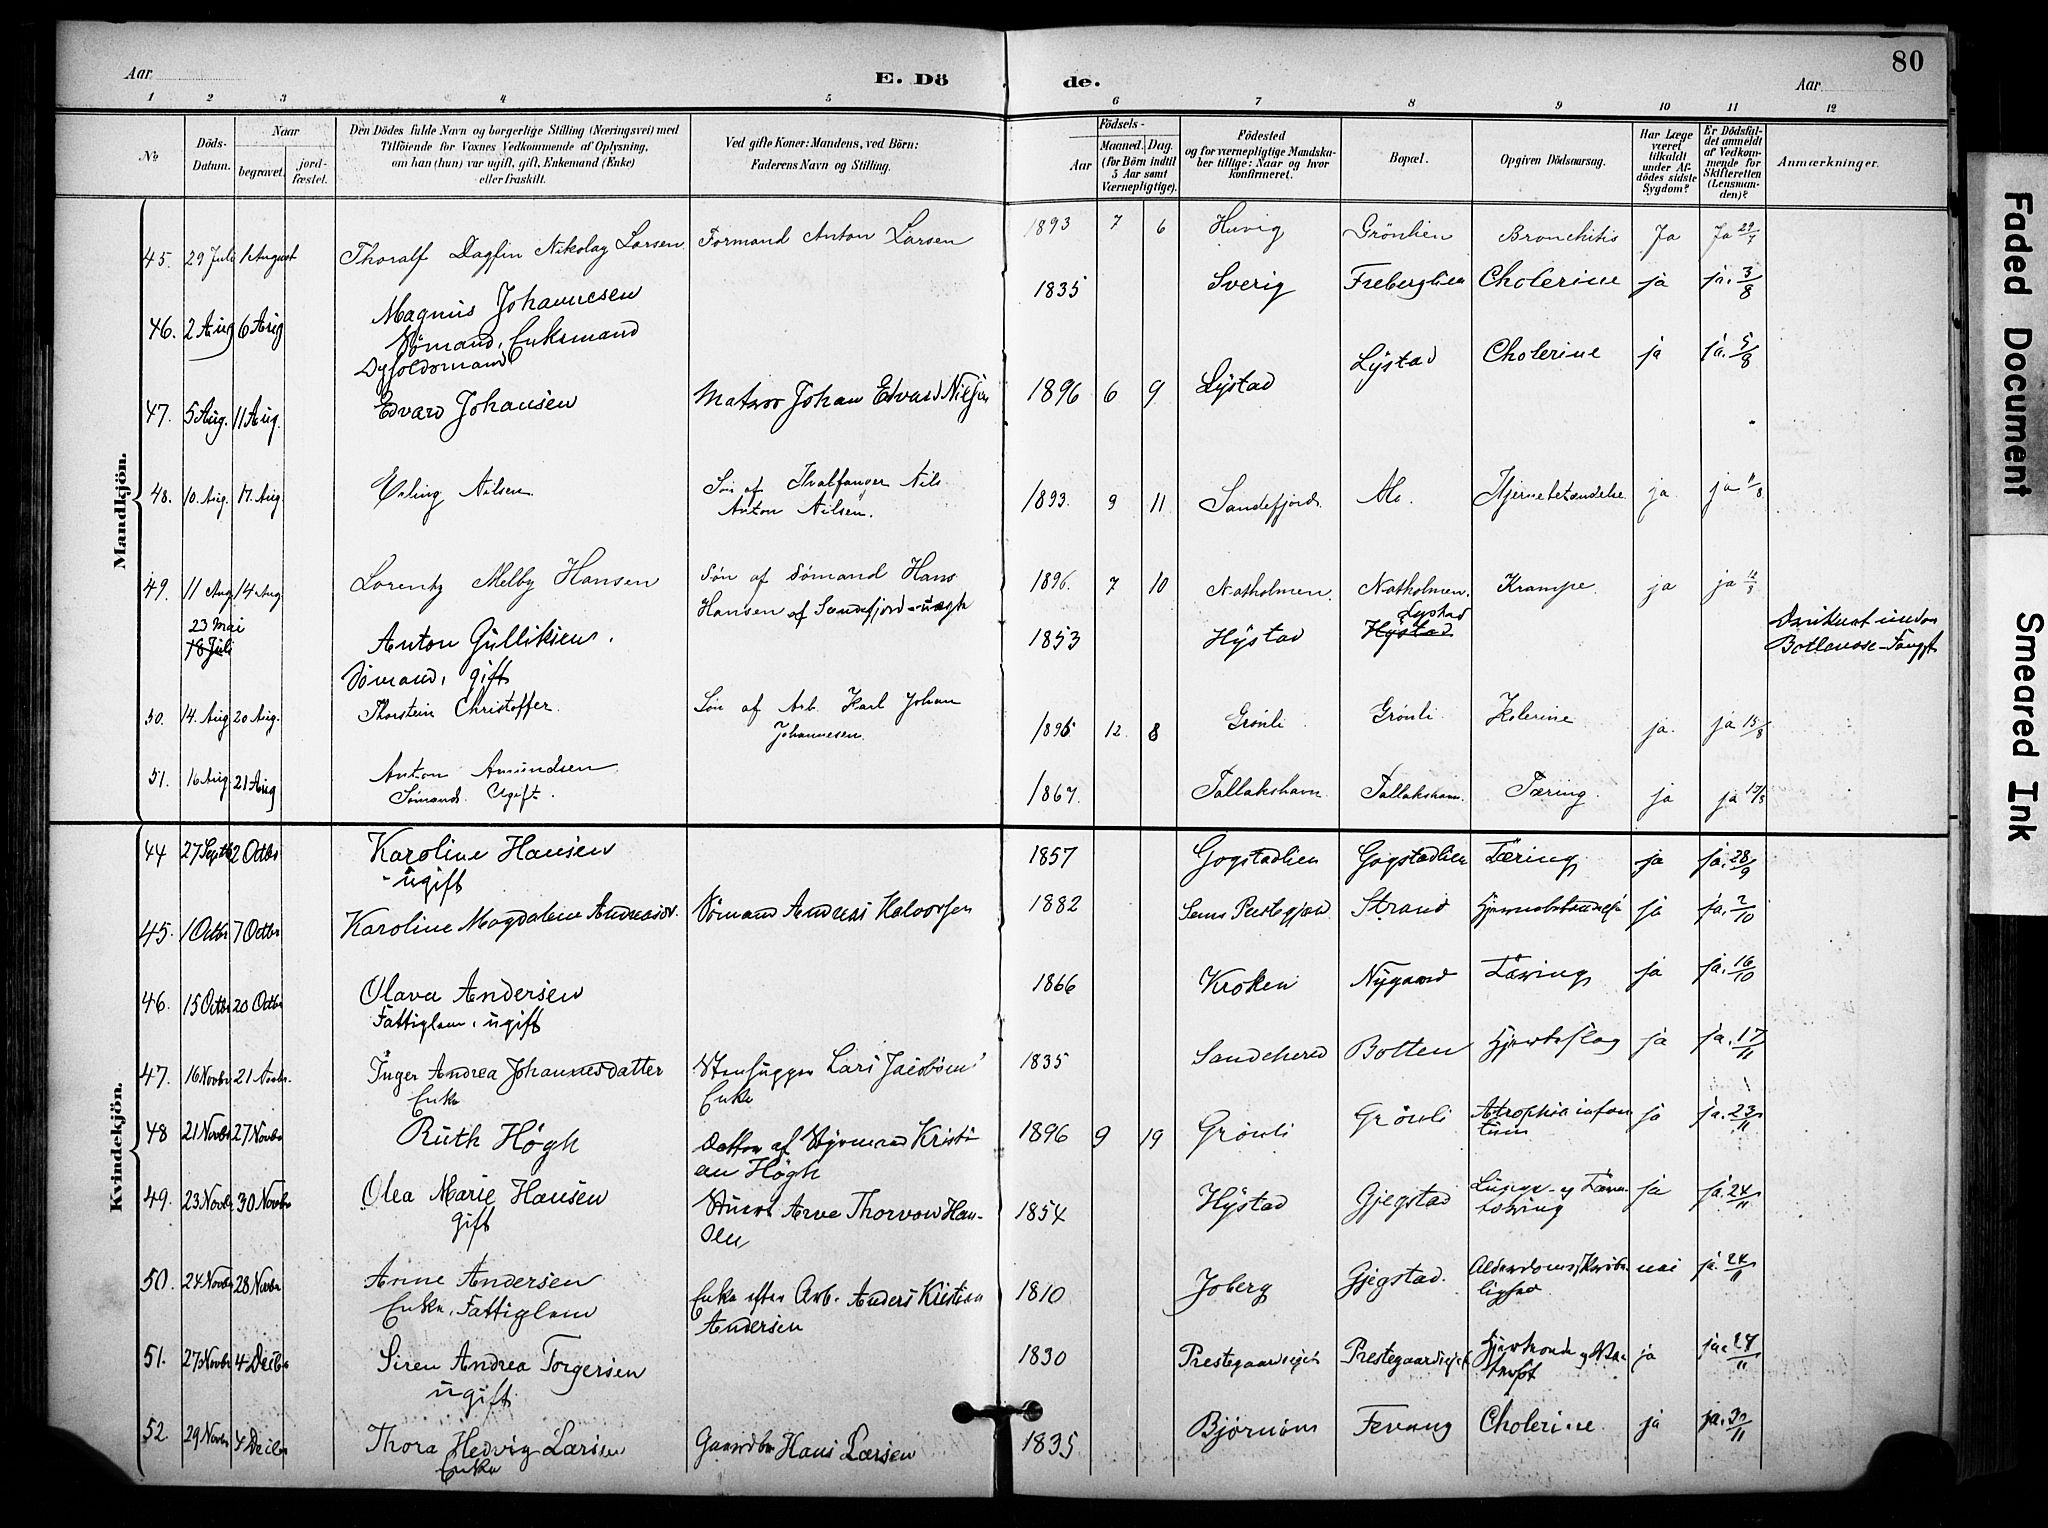 80
Aar
E. Dö
de.
Aar
1 2 3 4 5 6 7 8 9 10 11 12
No
Döds-Datum.
Naar
begravet.
jord-fæstet.
Den Dödes fulde Navn og borgerlige Stilling (Næringsvei) med
Tilföiende for Voxnes Vedkommende af Oplysning,
om han (hun) var ugift, gift, Enkemand (Enke)
eller fraskilt.
Ved gifte Koner: Mandens, ved Börn:
Faderens Navn og Stilling.
Födsels-
Aar
Maaned. Dag.
(for Börn indtil
5 Aar samt
Værnepligtige).
Födested
og for værnepligtige Mandska-
ber tillige: Naar og hvor
konfirmeret.
Bopæl.
Opgiven Dödsaarsag.
Har Læge
været
tilkaldt
under Af-
dödes sidste
Sygdom?
Er Dödsfal-
det anmeldt
af Vedkom-
mende for
Skifteretten
(Lensman-
den)?
Anmærkninger.
Mandkjön.
45. 29 Juli 1 August Thoralf Dagfin Nikolay Larsen Formand Anton Larsen 1893 7 6 Huvig Grönlien Bronchitis Ja Ja 29/7
46. 2 Aug 6 Aug Magnus Johannesen 1835 Sverig Freberglien Cholerine ja ja. 3/8
Sømand, Enkemand
47. 5 Aug. 11 Aug. Edvard Johansen Matros Johan Edvard Nilsen 1896 6 9 Lystad Lystad Cholerine ja ja. 5/8
48. 10 Aug. 17 Aug. Erling Nilsen Søn af Hvalfanger Nils
Anton Nilsen. 1893. 9 11 Sandefjord Al. Hjernebetændelse ja ja 11/8
49. 11 Aug 14 Aug Lorentz Melby Hansen Søn af Sømand Hans
Hansen af Sandefjord - uægte 1896. 7 10 Natholmen. Natholmen. Krampe ja ja 12/8
23 Mai
18 Juli Anton Gulliksen. 1853 Hystad Hystad Lystad
Sømand, gift
Druknet under
Botlenose-Fangst
50. 14 Aug 20 Aug. Thorstein Christoffer Søn af Arb. Karl Johan
Johannesen. 1895 12 8 Grönli Grönli Kolerine ja. ja 15/8
51. 16 Aug 21 Aug Anton Amundsen 1867. Tallakshavn Tallakshavn. Tæring. ja ja 17/8
Sømand. Ugift.
Kvindekjön.
44 27 Septb 2 Octbr Karoline Hansen 1857 Gogstadlien Gogstadlien Tæring ja ja. 28/9
- ugift
45. 1 Octbr 7 Octbr Karoline Magdalene Andreasdr. Sømand Andreas Halvorsen 1882 Sems Prestegjæld Strand Hjernebetændelse ja ja. 2/10
46. 15 Octbr 20 Octbr Olava Andersen 1866 Kroken Nygaard Tæring ja ja. 16/10
Fattiglem, ugift
47. 16 Novbr 21 Novbr. Inger Andrea Johannesdatter Stenhugger Lars Jacobsens 1835 Sandehered Botten Hjerteslag ja ja. 17/11
Enke Enke
48 21 Novbr 27 Novbr Ruth Högh Datter af Styrmand Kristi
an Högh 1896 9 19 Grönli Grönli Atrophia infan
tum ja ja. 23/11
49. 23 Novbr 30 Novbr Olea Marie Hansen Stuert Arve Thorvald Han-
sen 1854 Hystad Gjegstad Lunge- og Tarm
tæring ja ja. 24/11
gift
50. 24 Novbr 28 Novbr Anne Andersen Enke efter Arb. Anders Kristian
Andersen 1810 Joberg Gjegstad. Alderdomssvækkelighed nei ja. 24/11
Enke, Fattiglem
51. 27 Novbr 4 Decbr Siren Andrea Torgersen 1830 Prestegaardseiet Prestegaardseiet ja ja. 27/11
ugift
52. 29 Novbr 4 Decbr Thora Hedvig Larsen Gaardbr Hans Larsen 1835 Bjørnum Fevang Cholerine. ja ja. 30/11
Enke
Faded Document
Smeared Ink